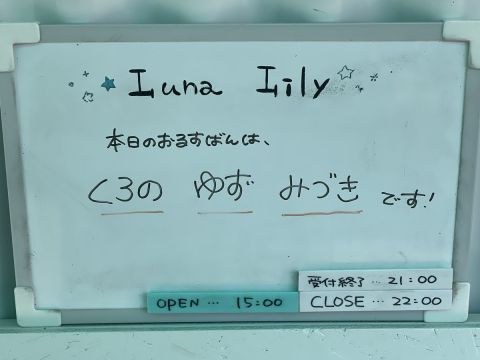 Luna Lily
本日のおるすばんは、
くろの ゆず みづき です!
受付終了… 21:00
OPEN… 15:00 CLOSE… 22:00